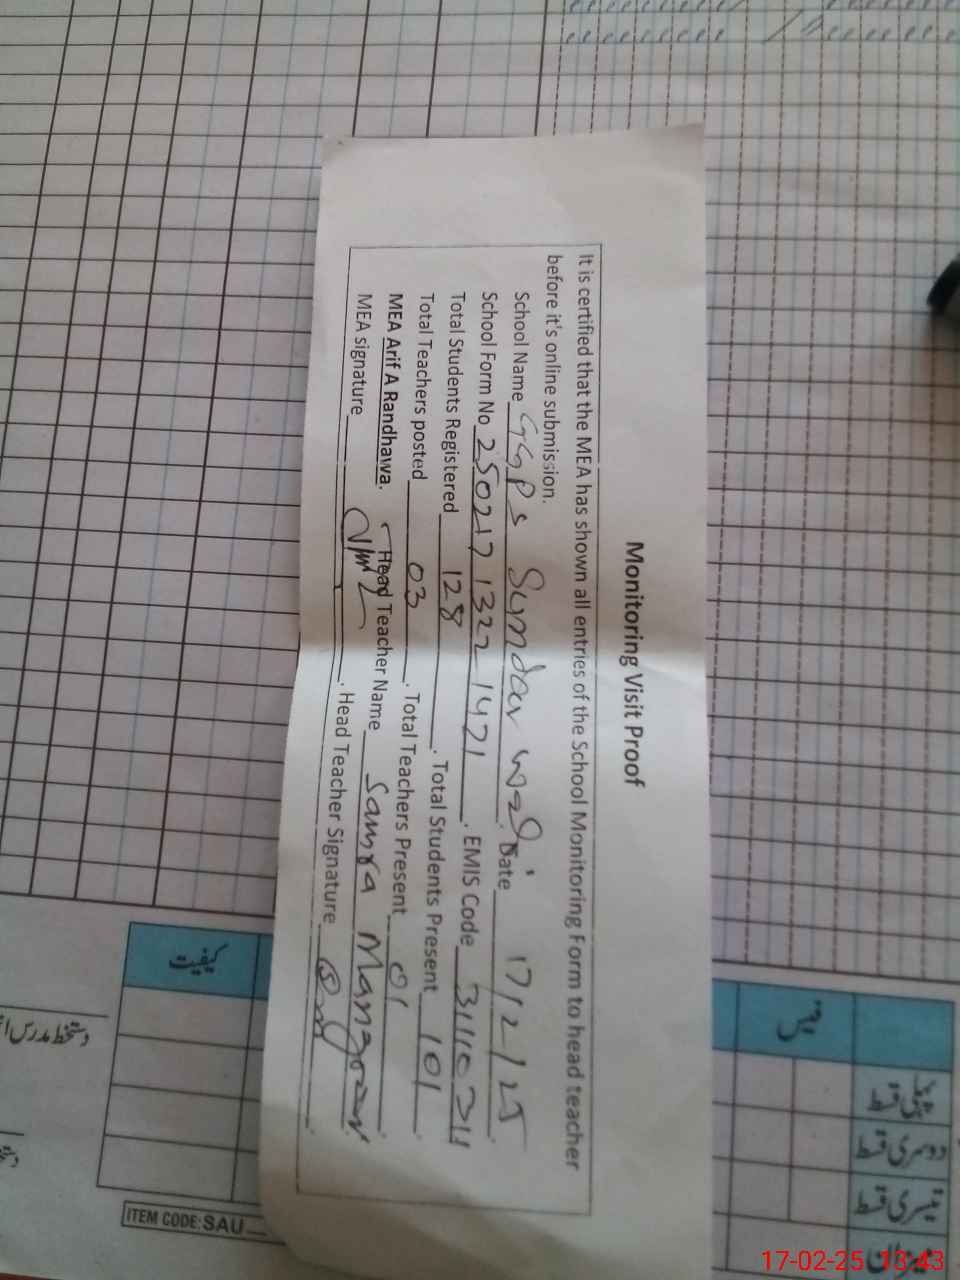 Monitoring Visit Proof
It is certified that the MEA has shown all entries of the School Monitoring Form to head teacher
before it's online submission.
School Name GGPS Sundar wala. Date 17/2/25.
School Form No 2502171322 1421. EMIS Code 31110311
Total Students Registered 128. Total Students Present 101.
Total Teachers posted 03. Total Teachers Present 01.
MEA Arif A Randhawa. Head Teacher Name Samra Mangrani.
MEA signature. Head Teacher Signature
قیس
پہلی قسط
دوسری قسط
تیسری قسط
میزان
دستخط مدرس
ITEM CODE: SAU
17-02-25 13:43